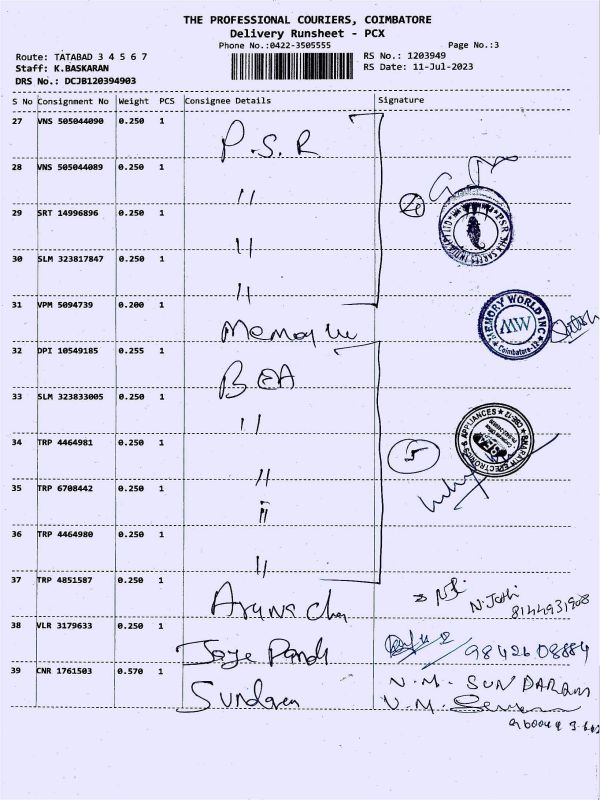 THE PROFESSIONAL COURIERS, COIMBATORE
Delivery Runsheet - PCX
Phone No.:0422-3505555
Page No.:3
Route: TATABAD 3 4 5 6 7
Staff: K.BASKARAN
DRS No.: DCJB120394903
RS No.: 1203949
RS Date: 11-Jul-2023
S No Consignment No Weight PCS Consignee Details Signature
27 VNS 505044090 0.250 1 P.S.R
28 VNS 505044089 0.250 1 "
4
29 SRT 14996896 0.250 1 "
30 SLM 323817847 0.250 1 "
31 VPM 5094739 0.200 1 Memory
MEMORY WORLD INC
MW
Coimbatore-12
32 DPI 10549185 0.255 1 BEA
33 SLM 323833005 0.250 1 "
BHARATH ELECTRONICS & APPLIANCES
34 TRP 4464981 0.250 1 "
5
35 TRP 6708442 0.250 1 "
36 TRP 4464980 0.250 1 "
37 TRP 4851587 0.250 1
N.Jothi
8144931908
38 VLR 3179633 0.250 1
9842608884
39 CNR 1761503 0.570 1
N.M. SUNDARAM